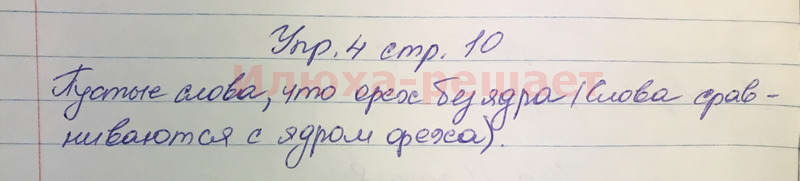 Упр. 4 стр. 10
Илюха-решает
Пустые слова, что орех без ядра (Слова срав-
ниваются с ядром ореха).